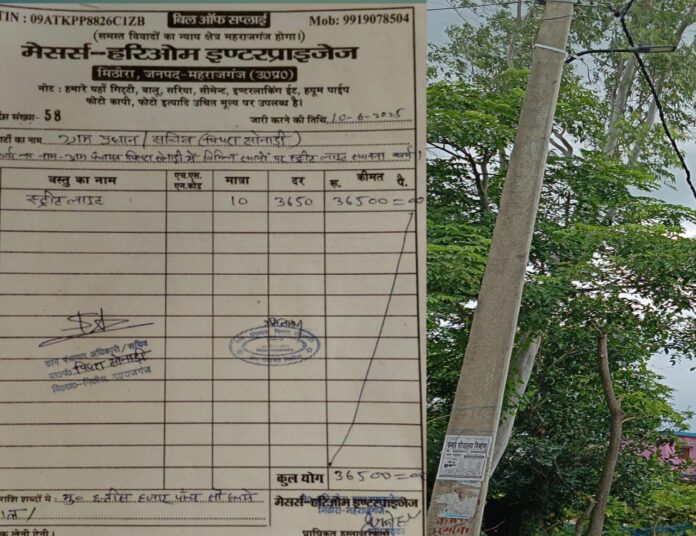 TIN : 09ATKPP8826C1ZB बिल ऑफ सप्लाई Mob: 9919078504
(समस्त विवादों का न्याय क्षेत्र महराजगंज होगा।)
मेसर्स-हरिओम इण्टरप्राइजेज
मिठौरा, जनपद-महराजगंज (उ0प्र0)
नोट : हमारे यहाँ गिट्टी, बालू, सरिया, सीमेन्ट, इण्टरलाकिंग ईंट, ह्यूम पाईप
फोटो कापी, फोटो इत्यादि उचित मूल्य पर उपलब्ध है।
संख्या- 58 जारी करने की तिथि 10-6-2025
का नाम ग्राम प्रधान/सचिव (पिपरा सोनाड़ी)
नाम-ग्राम पंचायत पिपरा सोनाड़ी में विभिन्न स्थानों पर स्ट्रीट लाइट स्थापना कार्य
वस्तु का नाम एच.एस.एन.कोड मात्रा दर रू. कीमत पै.
स्ट्रीट लाइट 10 3650 36500=00
ग्राम पंचायत अधिकारी/सचिव
ग्रा0पं0 पिपरा सोनाड़ी
वि0ख0-मिठौरा, महराजगंज
कुल योग 36500=00
राशि शब्दों में : मु0 छत्तीस हजार पांच सौ रूपये
मेसर्स-हरिओम इण्टरप्राइजेज
मिठौरा-महराजगंज